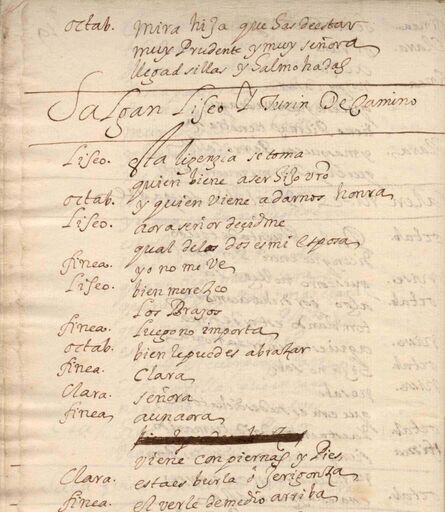 octab. mira hija que has de estar
muy Prudente y muy señora
llegad sillas y halmohadas
Salgan Liseo y Turin De Camino
Liseo. esta lizenzia se toma
quien biene a ser hijo vro
octab. y quien viene a darnos honra
Liseo. aora señor dezidme
qual de las dos es mi esposa
finea. yo no me ve
Liseo. bien merezco
Los Brazos
finea. luego no importa
octab. bien le puedes abrazar
finea. Clara
Clara. señora
finea. aun aora
viene con piernas y Pies
Clara. esta es burla o gerigonza
finea. el verle de medio arriba